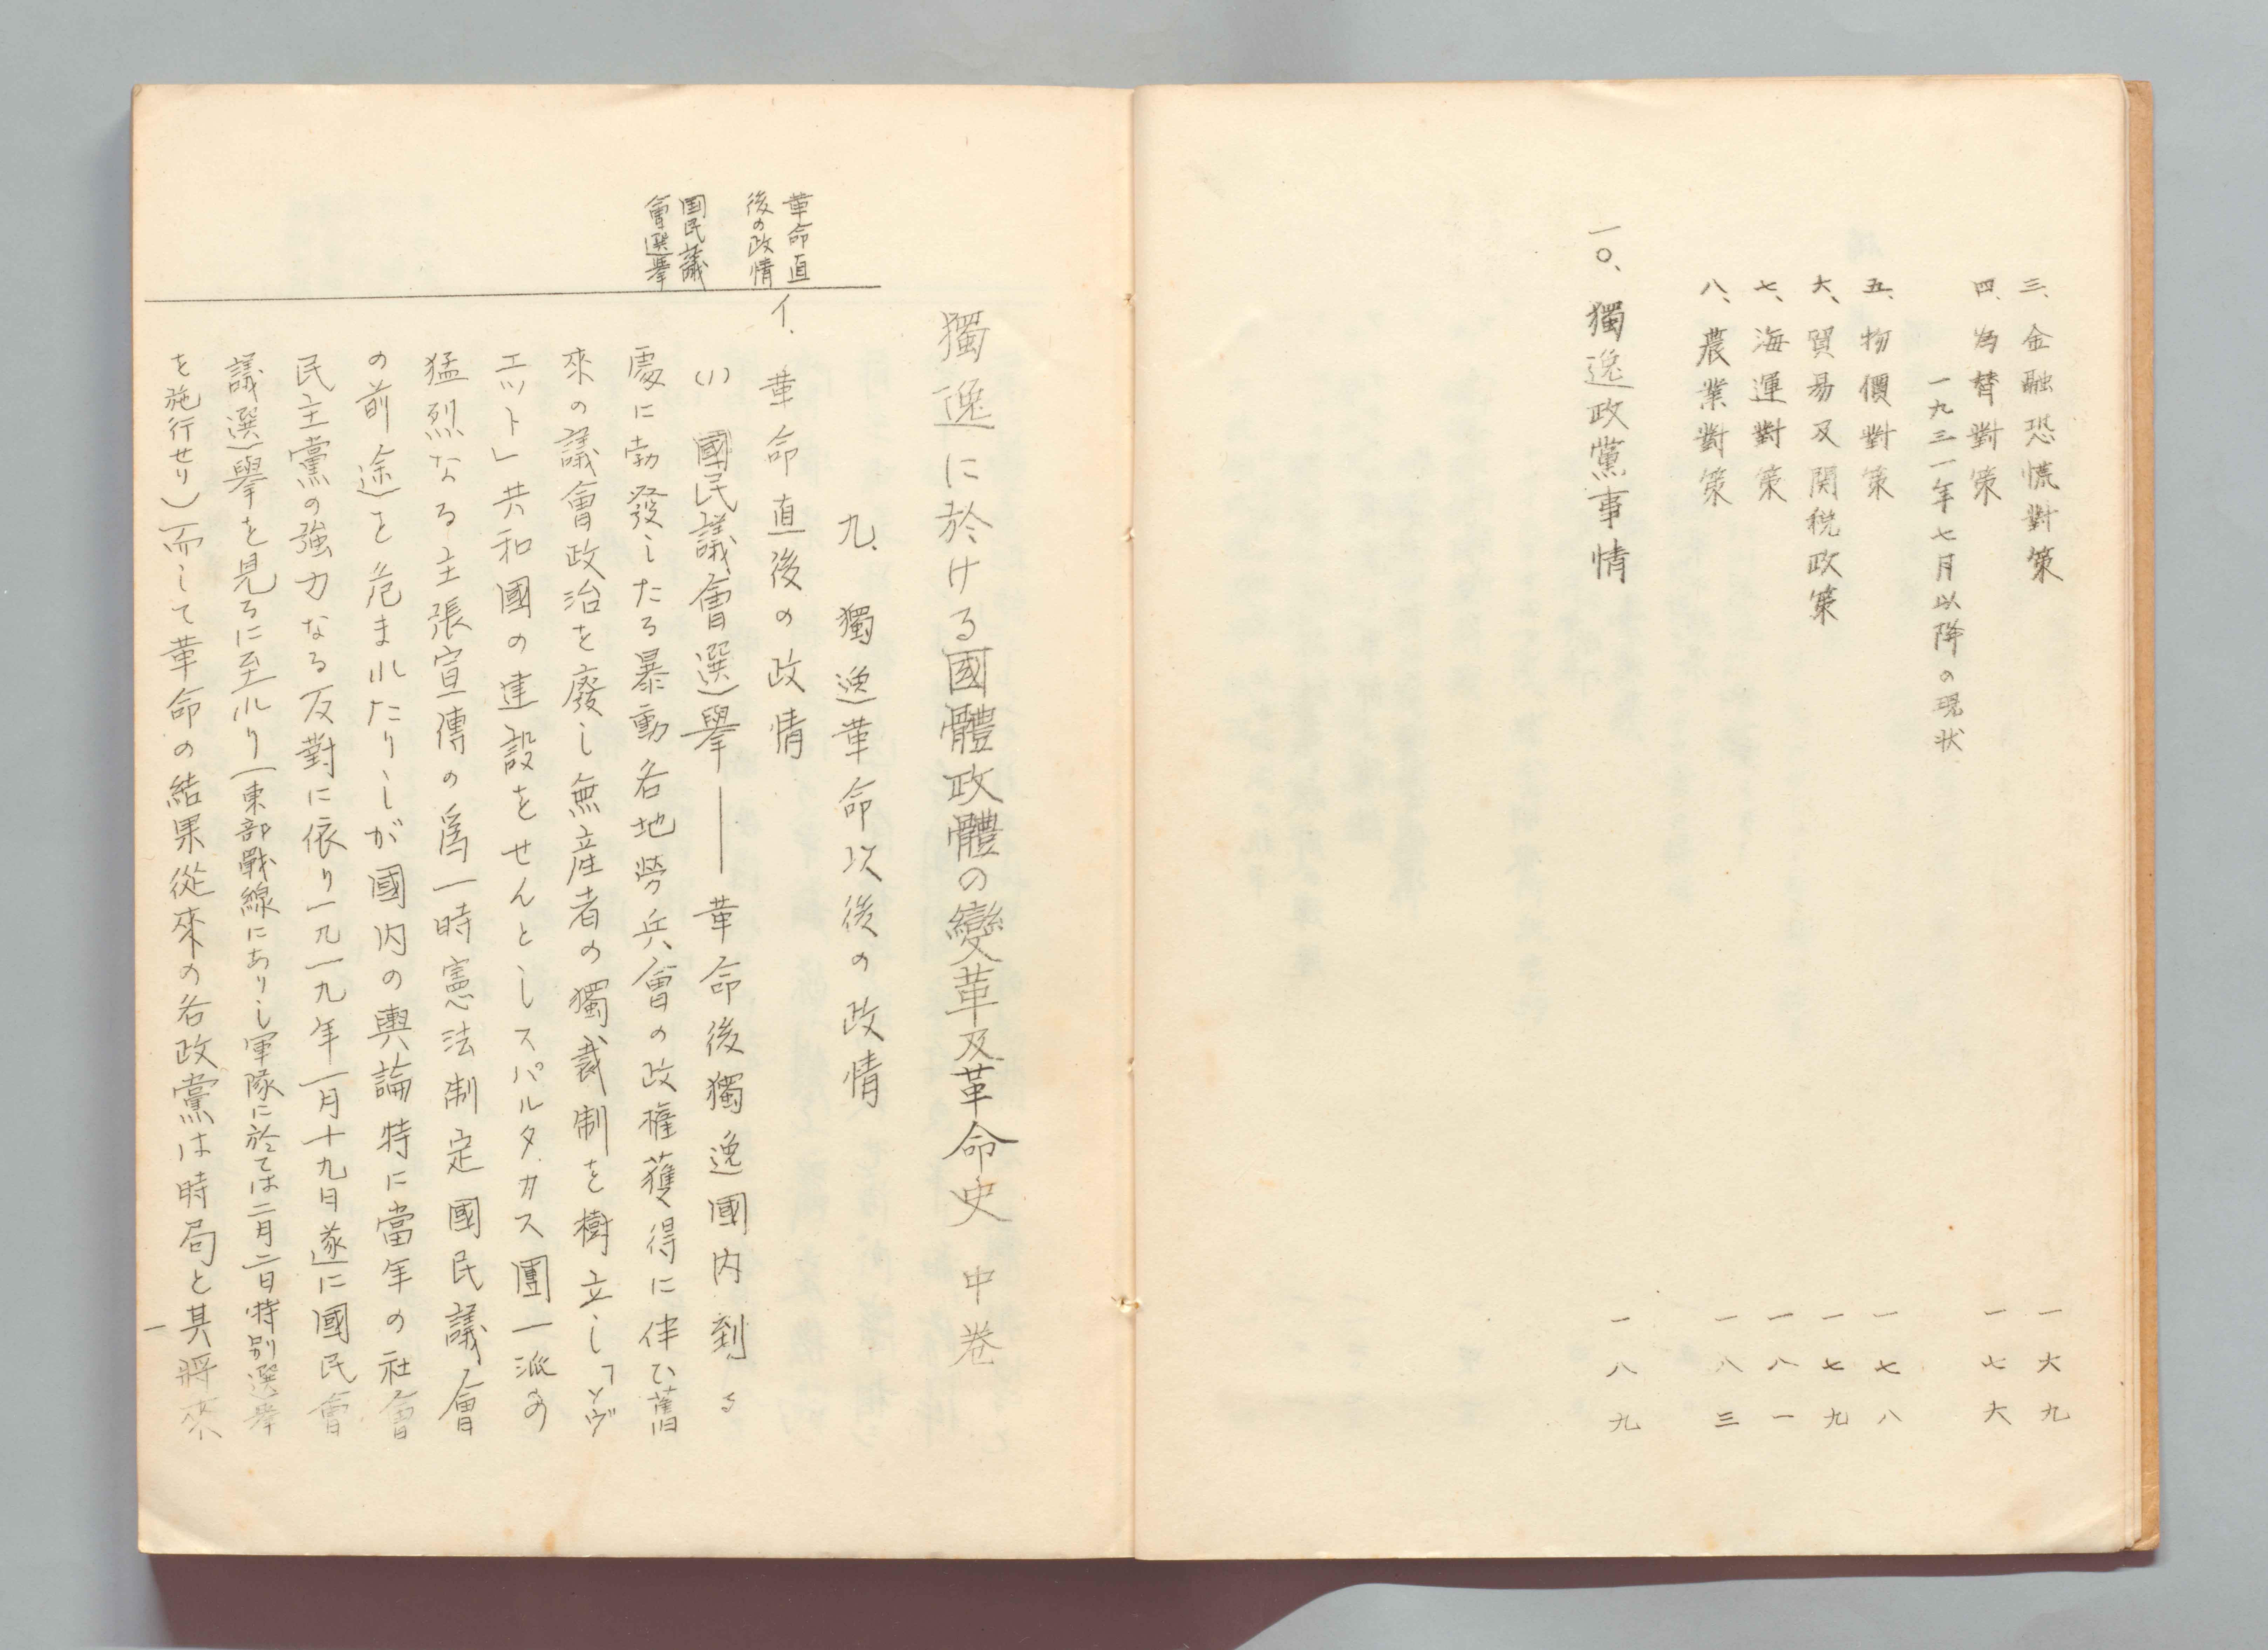 三、金融恐慌對策 一六九
四、為替對策 一七六
一九三一年七月以降の現状
五、物價對策 一七八
六、貿易及関税政策 一七九
七、海運對策 一八一
八、農業對策 一八三
一〇、獨逸政黨事情 一八九
獨逸に於ける國體政體の變革及革命史 中巻
九、獨逸革命以後の政情
革命直
後の政情
イ、革命直後の政情
国民議
會選挙
(1) 國民議會選擧――革命後獨逸國内到る
處に勃發したる暴動各地勞兵會の政権獲得に伴ひ舊
來の議會政治を廢し無産者の獨裁制を樹立し「ソヴ
エット」共和國の建設をせんとしスパルタカス團一派の
猛烈なる主張宣傳の爲一時憲法制定國民議會
の前途を危まれたりしが國内の輿論特に當年の社會
民主黨の強力なる反對に依り一九一九年一月十九日遂に國民會
議選擧を見るに至れり(東部戰線にありし軍隊に於ては二月二日特別選挙
を施行せり)而して革命の結果從來の各政黨は時局と其將來
一